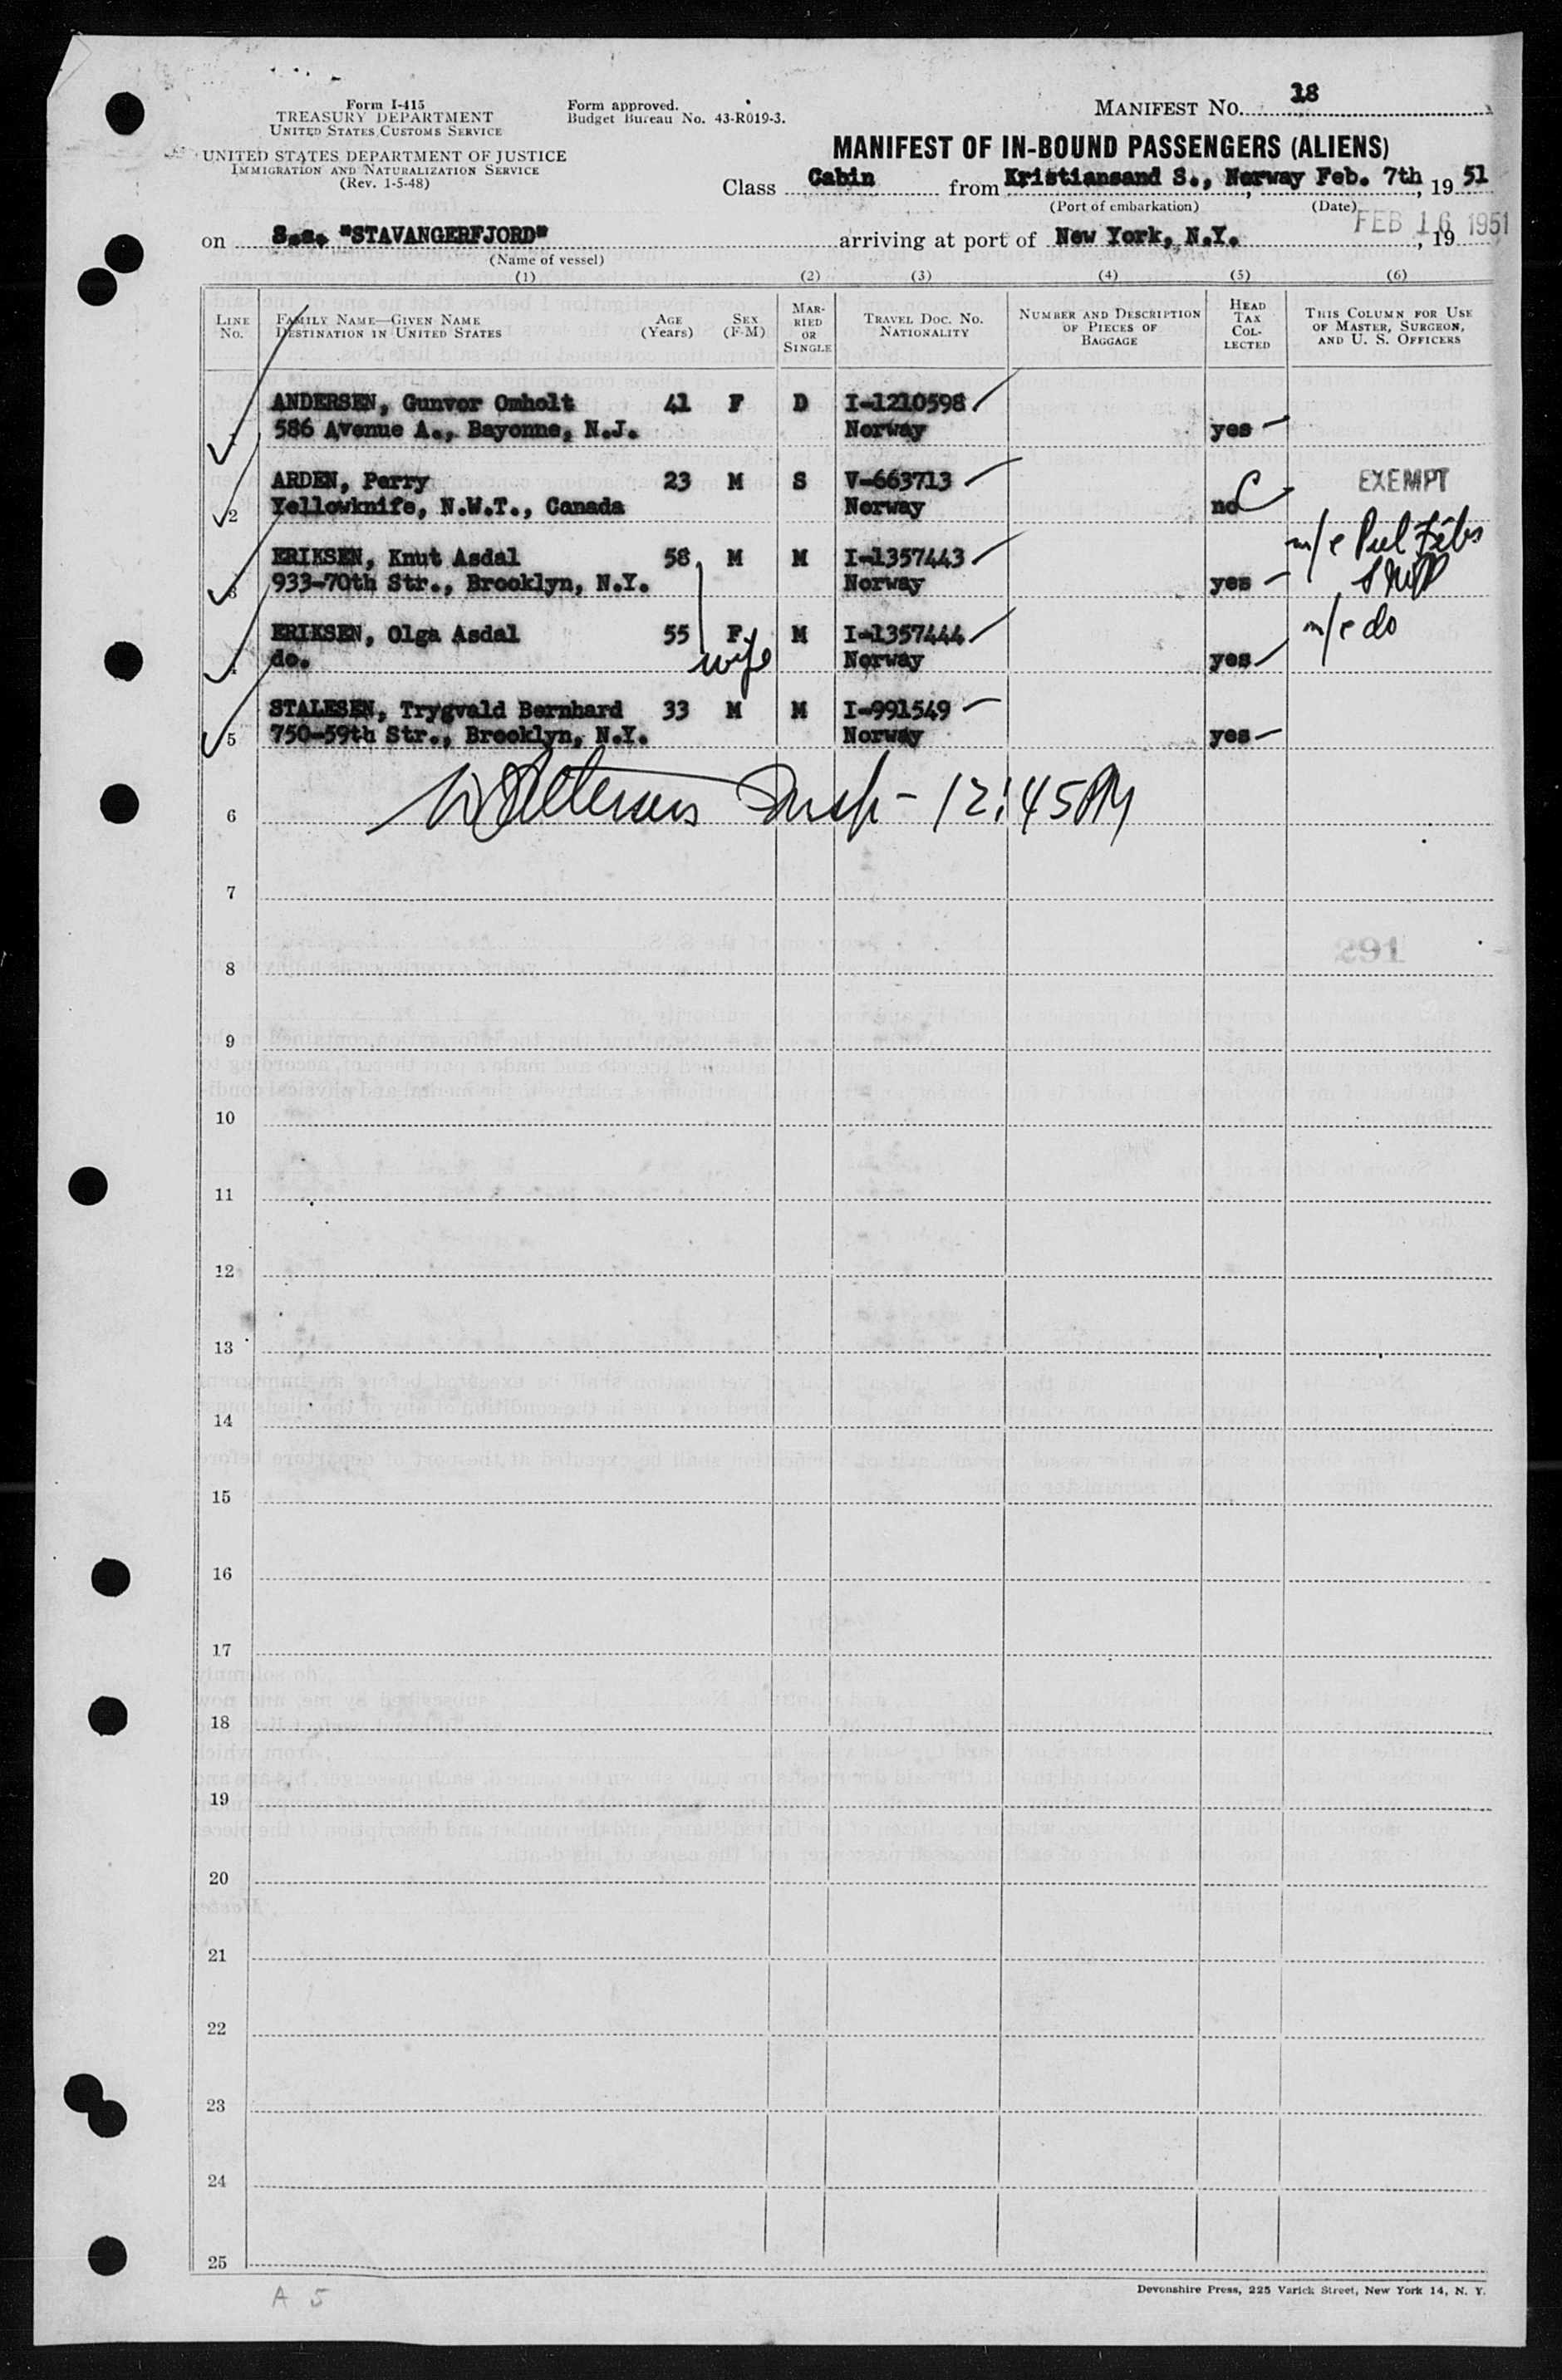 Form I-415
TREASURY DEPARTMENT
UNITED STATES CUSTOMS SERVICE
UNITED STATES DEPARTMENT OF JUSTICE
IMMIGRATION AND NATURALIZATION SERVICE
(Rev. 1-5-48)
Form approved.
Budget Bureau No. 43-R019-3.
MANIFEST NO. 18
MANIFEST OF IN-BOUND PASSENGERS (ALIENS)
Class Cabin from Kristiansand S., Norway Feb. 7th, 19 51
(Port of embarkation) (Date)
FEB 16 1951
on S.s. "STAVANGERFJORD" arriving at port of New York, N.Y. , 19
(Name of vessel)
(1) (2) (3) (4) (5) (6)
LINE NO. FAMILY NAME—GIVEN NAME DESTINATION IN UNITED STATES AGE (Years) SEX (F-M) MARRIED OR SINGLE TRAVEL DOC. NO. NATIONALITY NUMBER AND DESCRIPTION OF PIECES OF BAGGAGE HEAD TAX COLLECTED THIS COLUMN FOR USE OF MASTER, SURGEON, AND U. S. OFFICERS
ANDERSEN, Gunvor Omholt 41 F D I-1210598
586 Avenue A., Bayonne, N.J. Norway yes
ARDEN, Perry 23 M S V-663713 EXEMPT
2 Yellowknife, N.W.T., Canada Norway no
ERIKSEN, Knut Asdal 58 M M I-1357443 m/e
3 933-70th Str., Brooklyn, N.Y. Norway yes
ERIKSEN, Olga Asdal 55 F M I-1357444 m/e do
4 do. wife Norway yes
STALESEN, Trygvald Bernhard 33 M M I-991549
5 750-59th Str., Brooklyn, N.Y. Norway yes
6 Insp - 12:45 PM
7
291
8
9
10
11
12
13
14
15
16
17
18
19
20
21
22
23
24
25
A 5
Devonshire Press, 225 Varick Street, New York 14, N. Y.